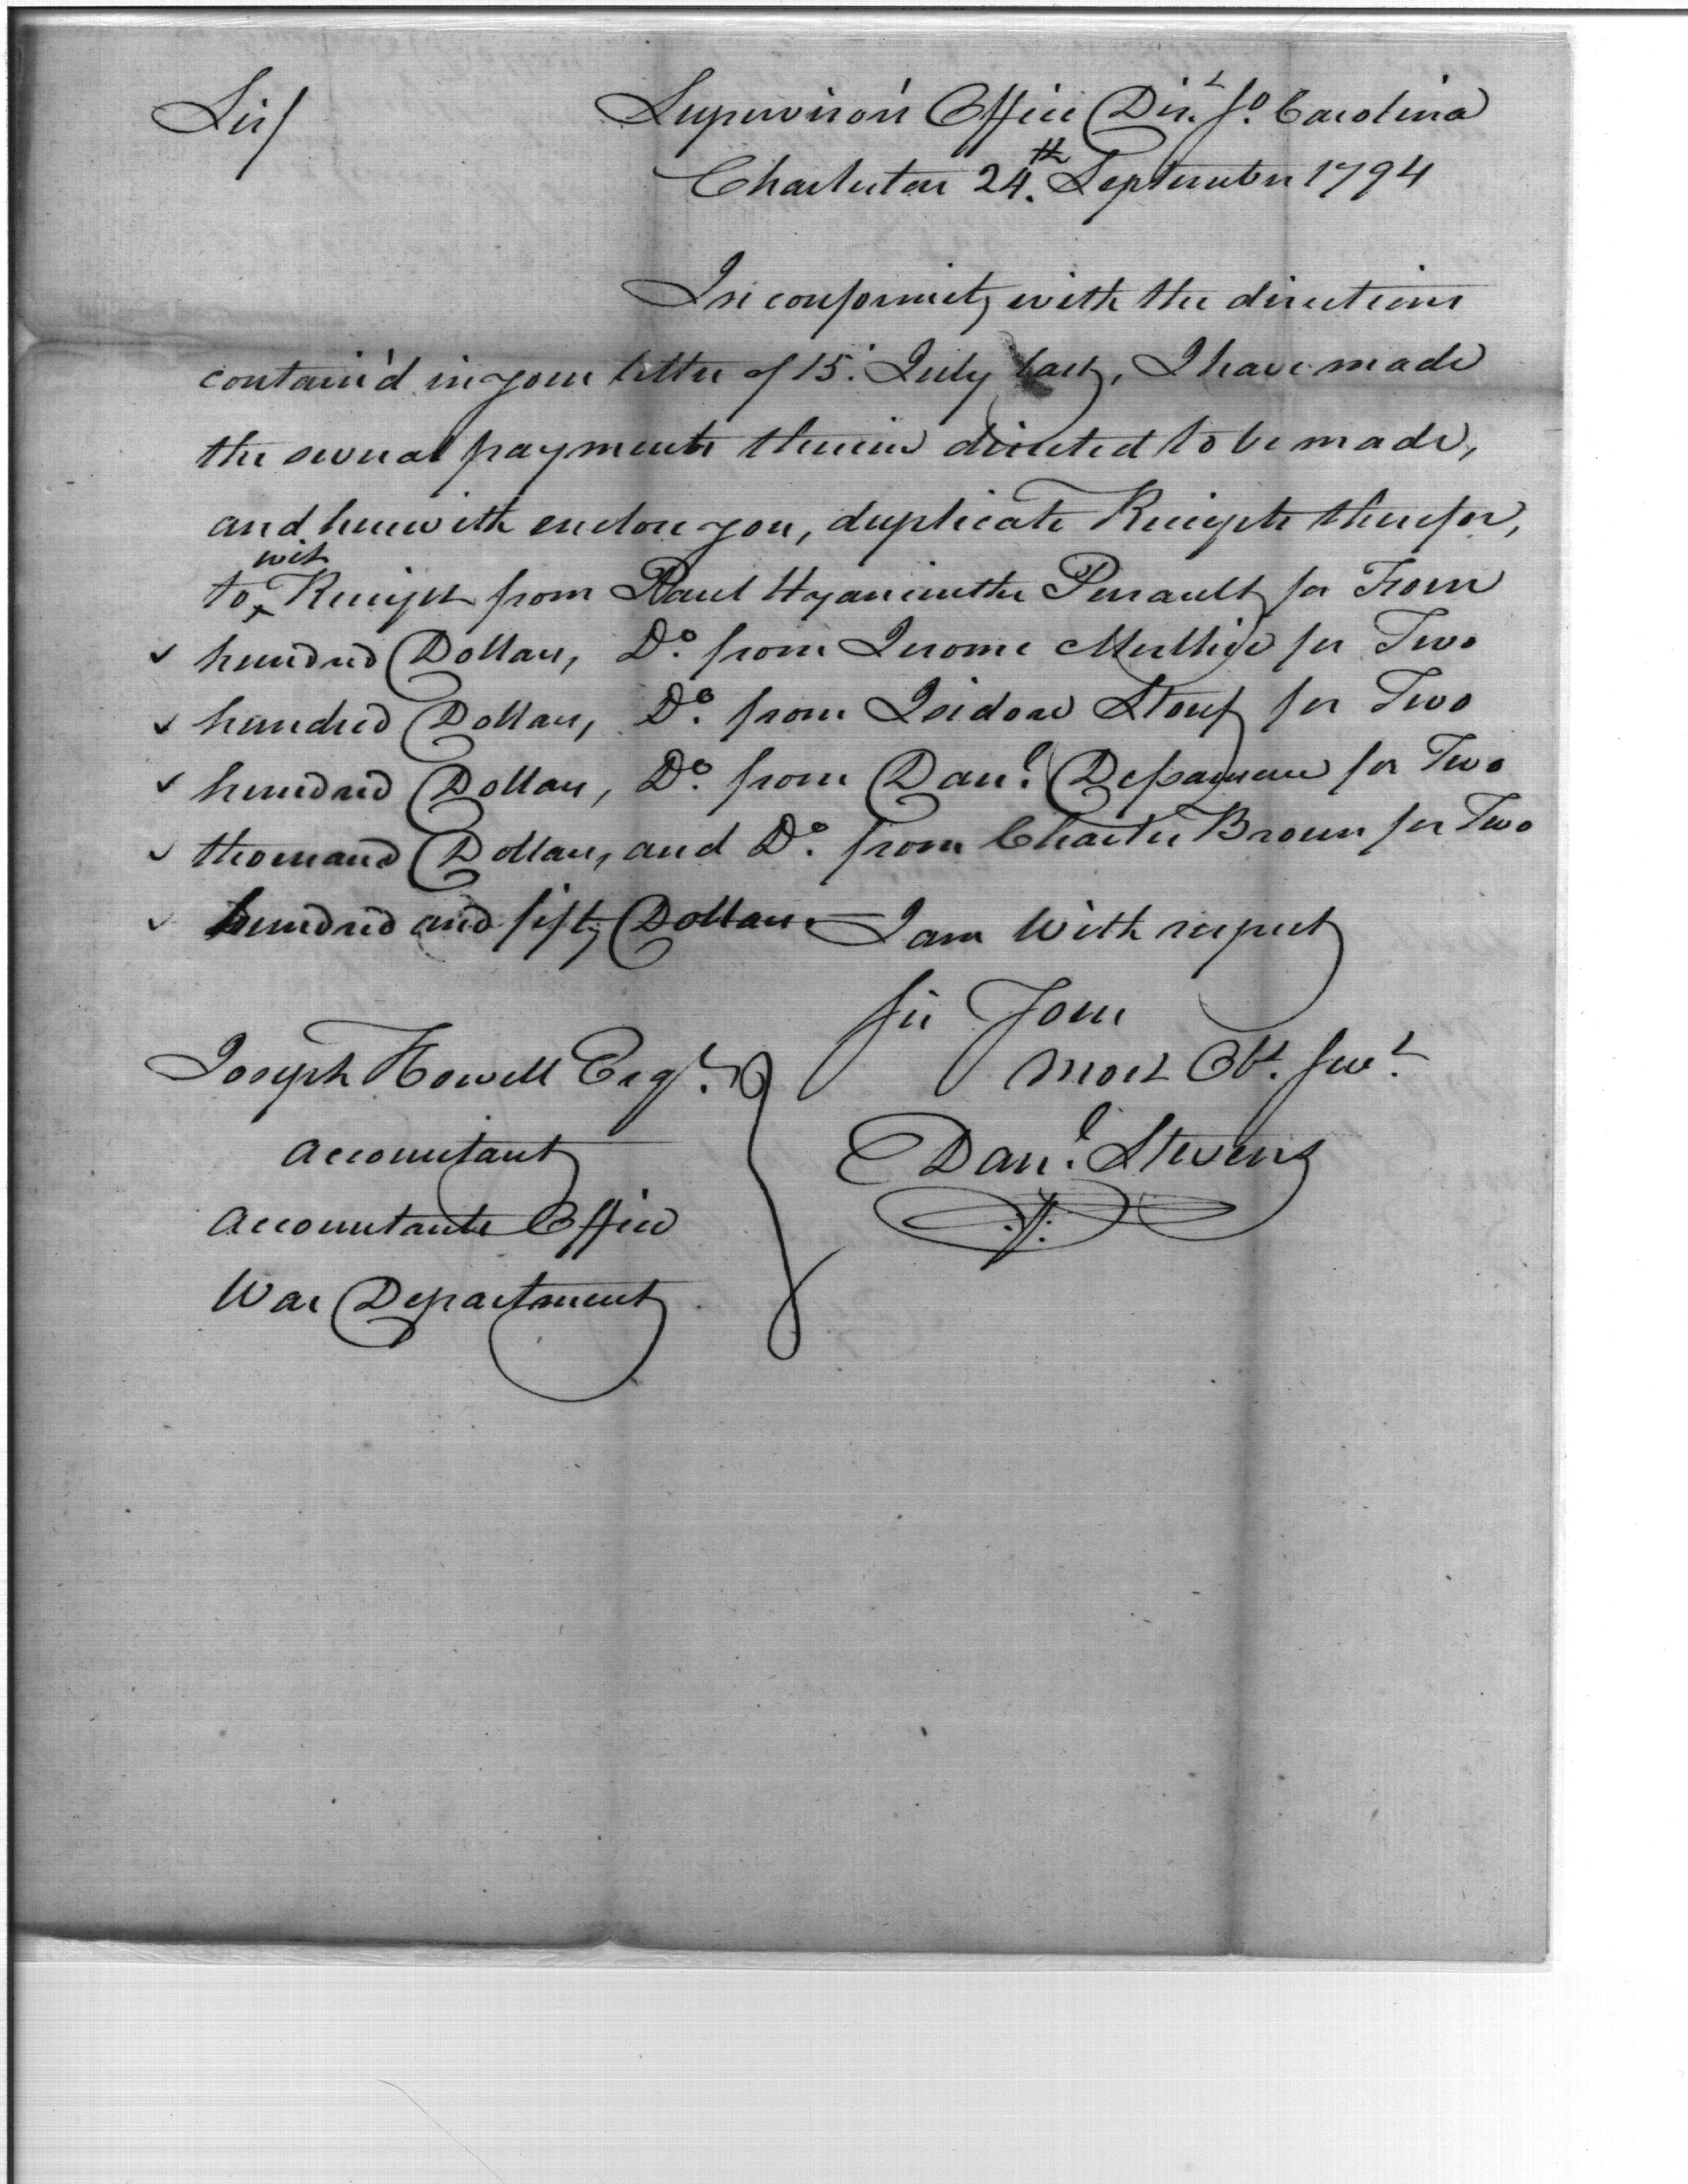 Sir/
Supervisor's Office Dist. So. Carolina
Charleston 24th. September 1794
In conformity with the directions
contain'd in your letter of 15. July last, I have made
the several payments therein directed to be made,
and herewith enclose you, duplicate Receipts therefor,
to wit Receipt from Paul Hyacinthe Perrault for Four
hundred Dollars, Do. from Jerome for Two
hundred Dollars, Do. from Isidore Stouf for Two
hundred Dollars, Do. from Danl. for Two
thousand Dollars, and Do. from Charles Brown for Two
hundred and fifty Dollars. I am With respect
Sir Your
most Obt. Servt.
Danl. Stevens
Joseph Howell Esqr.
Accountant
Accountants Office
War Department